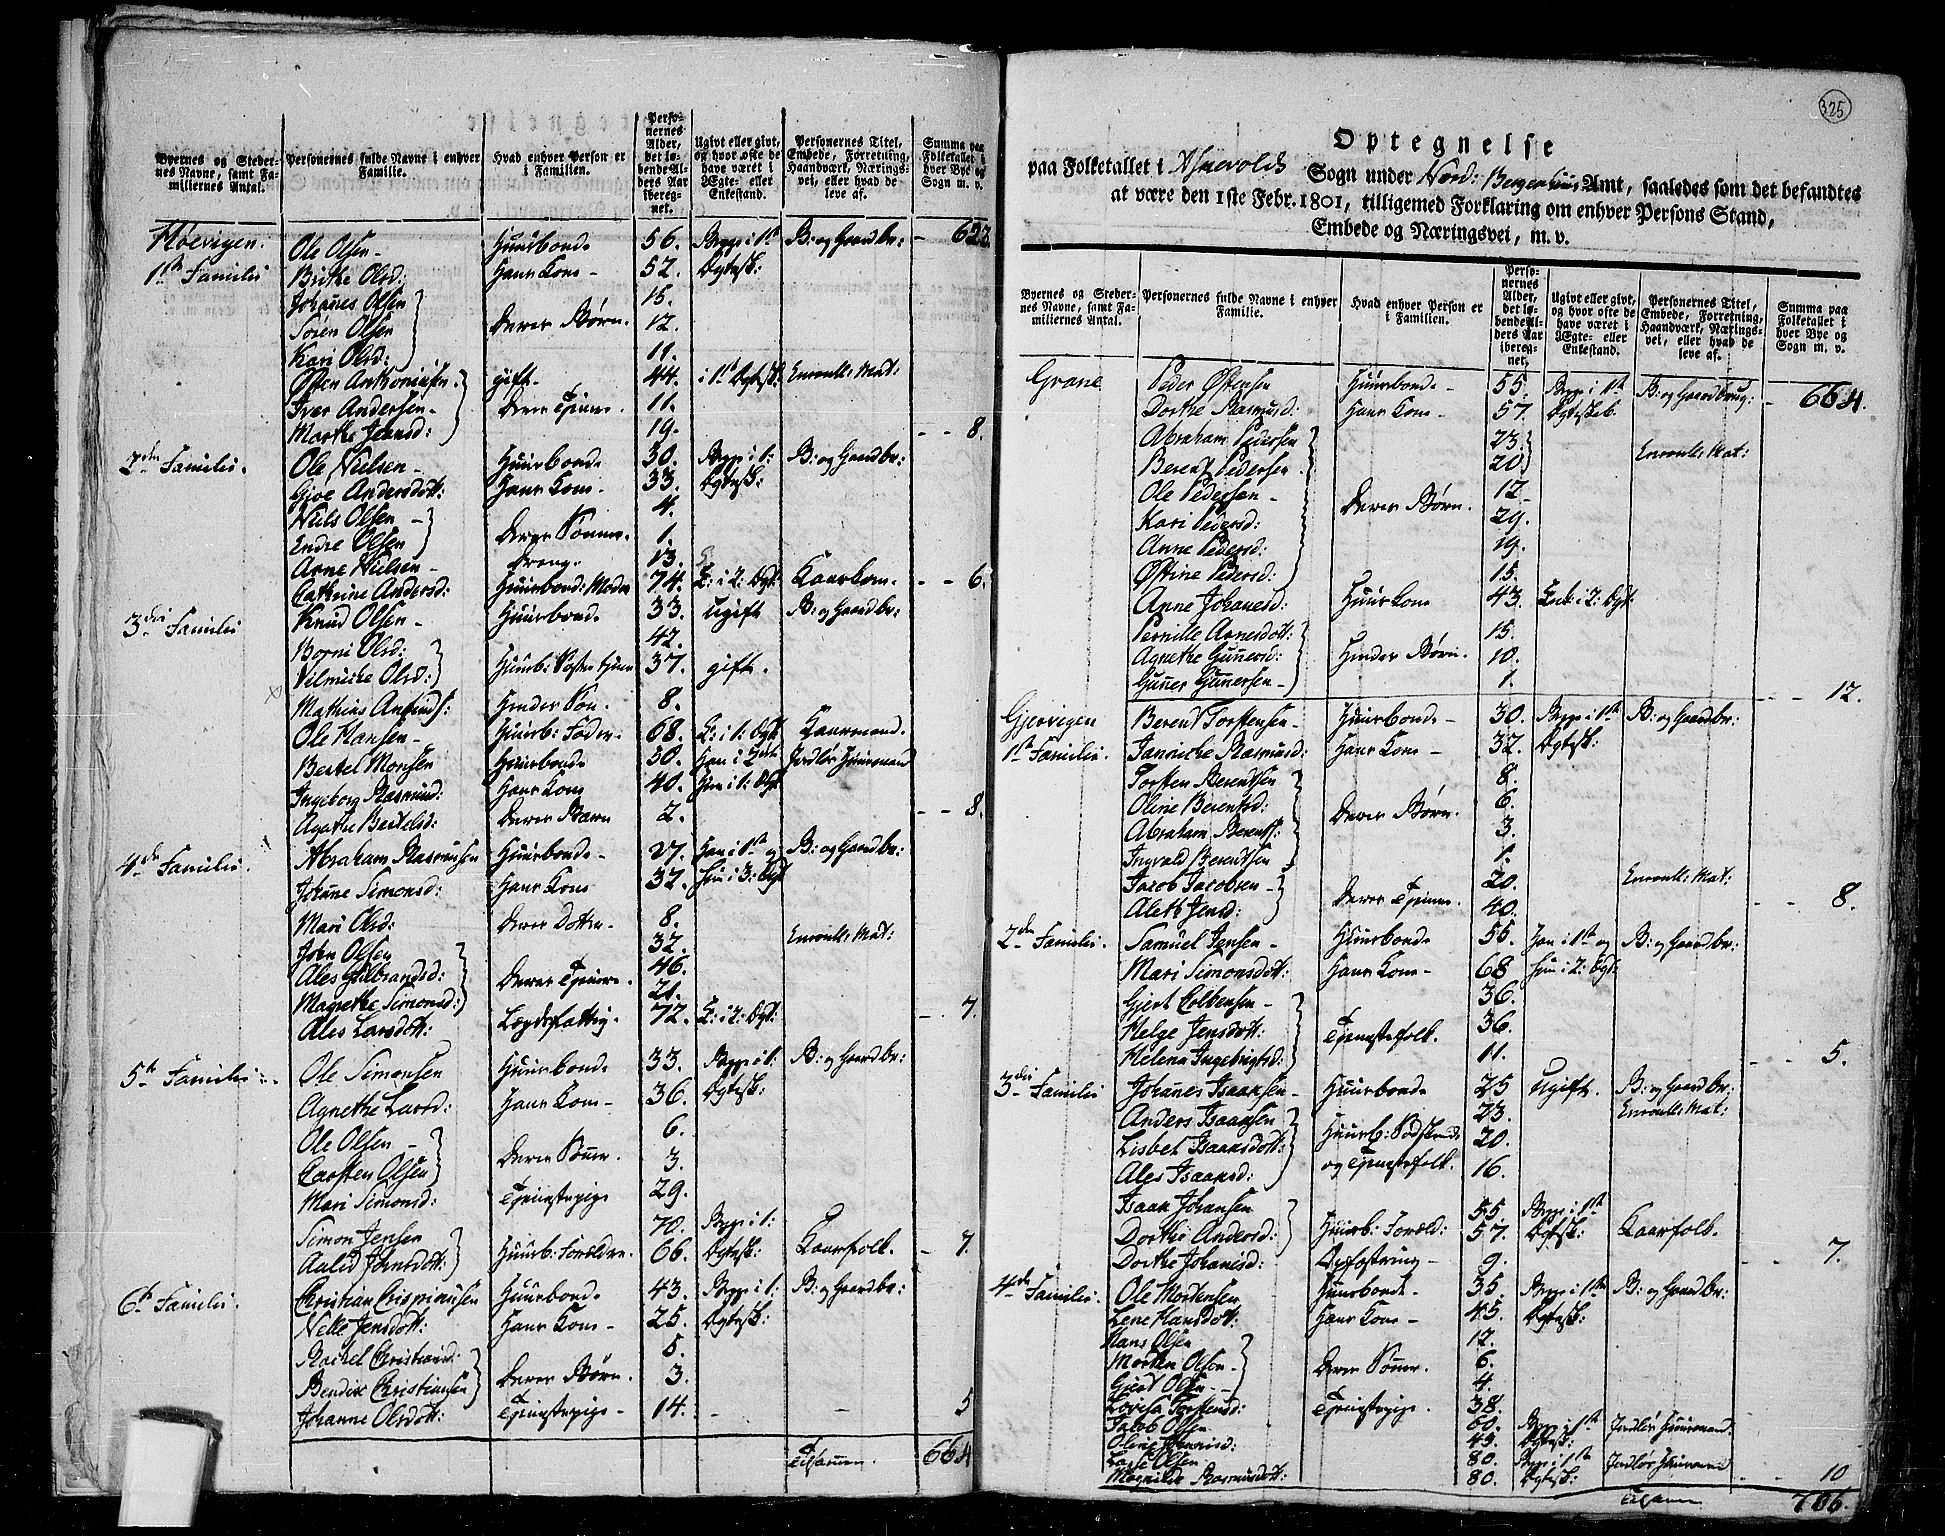 Byernes og Steder- nes Navne, samt Fa- miliernes Antal. | Personernes fulde Navne i enhver Familie. | Hvad enhver Person er i Familien. | Perso- nernes Alder, det lø- bende Al- ders Aar ibereg- net. | Ugivt eller givt, og hvor ofte de have været i Ægte- eller Enkestand. | Personernes Titel, Embede, Forretning, Haandværk, Nærings- vei, eller hvad de leve af. | Summa paa Folketallet i hver Bye og Sogn m. v.
Høevigen. Ole Olsen - Huusbonde 56. Begge i 1ste B: og Gaardbr: - 622.
1ste Familie Brithe Olsd: Hans Kone - 52. Ægtesk:
Johannes Olsen 15.
Søren Olsen Deres Børn. 12.
Kari Olsd: 11.
Østen Anthoniusen. gift. 44. i 1ste Ægtesk: Enroull: Mat:
Iver Andersen - Deres Tjenere. 11.
Marthe Jensd: 19. - - 8.
2den Familie. Ole Nielsen - Huusbonde 30. Begge i 1: B: og Gaardbr:
Gjøe Andersdott: Hans Kone - 33. Ægtesk:
Niels Olsen - 4.
Endre Olsen Deres Sønner. 1.
Arne Nielsen - Dreng. 13.
Cathrine Andersd: Huusbond: Moder 74. E: i 2: Ægt: Kaarkone. - - 6.
3die Familie Knud Olsen - Huusbonde 33. Ugift B: og Gaardbr:
Borni Olsd: 42.
Vilmiche Olsd: Huusb: Søster tjener 37. gift.
Mathias Amunds: Hendes Søn. 8.
Ole Hansen - Huusb: Fader - 68. E: i 1: Ægt Kaarmand.
Bertel Monsen Huusbonde 30. Han i 2det Jordløs Huusmand
Ingeborg Rasmusd: Hans Kone 40. Hun i 1: Ægt
Agathe Bertelsd: Deres Barn 2. - - 8.
4de Familie. Abraham Rasmusen Huusbonde - 27. Han i 1ste og B: og Gaardbr:
Johanne Simonsd: Hans Kone 37. Hun i 3: Ægt
Mari Olsd: Deres Datter - 8.
John Olsen 32. Enroull: Mat:
Ales Gulbrandsd: Deres Tjenere 46.
Magrethe Simonsd: 21.
Ales Larsdott: Lægdsfattig. 72. E: i 2: Ægt: - - 7.
5te Familie. Ole Simonsen Huusbonde 33. Begge i 1: B: og Gaardbr:
Agnethe Larsd: Hans Kone - 36. Ægtesk:
Ole Olsen - 6.
Carsten Olsen Deres Sønner. 3.
Mari Simonsd: Tjenestepige 29.
Simon Jensen 70. Begge i 1:
Aaled Johnsdott: Huusb: Forældre. 66. Ægtesk: Kaarfolk. - 7.
6te Familie. Christian Crispinusen Huusbonde 43. Begge i 1: B: og Gaardbr:
Nelle Jensdott: Hans Kone - 25. Ægtesk:
Rachel Christiansd: 5.
Bendix Christiansen Deres Børn. 3.
Johanne Olsdott: Tjenestepige - 14. - - 5
Tilsammen. 664
325
Optegnelse
paa Folketallet i Askevolds Sogn under Nord: Bergenhuus Amt, saaledes som det befandtes
at være den 1ste Febr. 1801, tilligemed Forklaring om enhver Persons Stand,
Embede og Næringsvei, m. v.
Byernes og Steder- nes Navne, samt Fa- miliernes Antal. | Personernes fulde Navne i enhver Familie. | Hvad enhver Person er i Familien. | Perso- nernes Alder, det lø- bende Al- ders Aar ibereg- net. | Ugivt eller givt, og hvor ofte de have været i Ægte- eller Enkestand. | Personernes Titel, Embede, Forretning, Haandværk, Nærings- vei, eller hvad de leve af. | Summa paa Folketallet i hver Bye og Sogn m. v.
Grane Peder Østensen Huusbonde - 55. Begge i 1ste B: og Gaardbrug: - 664.
Dorthe Rasmusd: Hans Kone - 57. Ægteskab.
Abraham Pedersen 23 Enroull: Mat:
Berent Pedersen 20
Ole Pedersen - Deres Børn. 12.
Kari Pedersd: 29.
Anne Pedersd: 19.
Østine Pedersd: 15.
Anne Johanesd: Huuskone 43. Enke i 2: Ægt:
Pernille Arnesdott: 15.
Agnethe Gunnersd: Hendes Børn. 10.
Gunner Gunnersen - 1. - - 12.
Gjervigen Berent Torstensen - Huusbonde - 30. Begge i 1ste B: og Gaardbr:
1ste Familie. Janniche Rasmusd: Hans Kone - 32. Ægtesk:
Torsten Berentsen 8.
Oline Berentsd: Deres Børn. 6.
Abraham Berents: 3.
Ingvald Berentsen 1.
Jacob Jacobsen - 20. Enroull: Mat:
Aleth Jensd: Deres Tjenere. 40. - - 8.
2den Familie. Samuel Jensen - Huusbonde 55. Han i 1ste og B: og Gaardbr:
Mari Simonsdott: Hans Kone - 68 Hun i 2: Ægt:
Gjert Colbensen - 36.
Helge Jensdott: Tjenestefolk. 36.
Helena Ingebrigtsd: 11. - - 5.
3die Familie Johanes Isaaksen - Huusbonde 25 Ugift. B: og Gaardbr:
Anders Isaaksen 23. Enroull: Mat:
Lisbet Isaaksdott: Huusb: Sødskende 20.
Ales Isaaksd: og Tjenestefolk. 16.
Isaak Johansen 55 Begge i 1ste
Dorthe Andersd: Huusb: Foræld: 57. Ægtesk: Kaarfolk.
Dorthe Johanisd: Opfostring - 9. - - 7.
4de Familie. Ole Mortensen Huusbonde 35. Begge i 1ste B: og Gaardbr:
Lene Hansdott: Hans Kone - 45. Ægtesk:
Hans Olsen 12.
Morten Olsen - Deres Sønner. 6.
Gjert Olsen - 4.
Lovisa Torstensd: Tjenestepige. 38.
Jacob Olsen 60. Begge i 1ste Jordløs Huusmand.
Oline 49. Ægtesk:
Lasse Olsen 80. Begge i 1ste Jordløs Huusmand
Magnilde Rasmusdott: 80. Ægtesk: - - 10
Tilsammen 706.